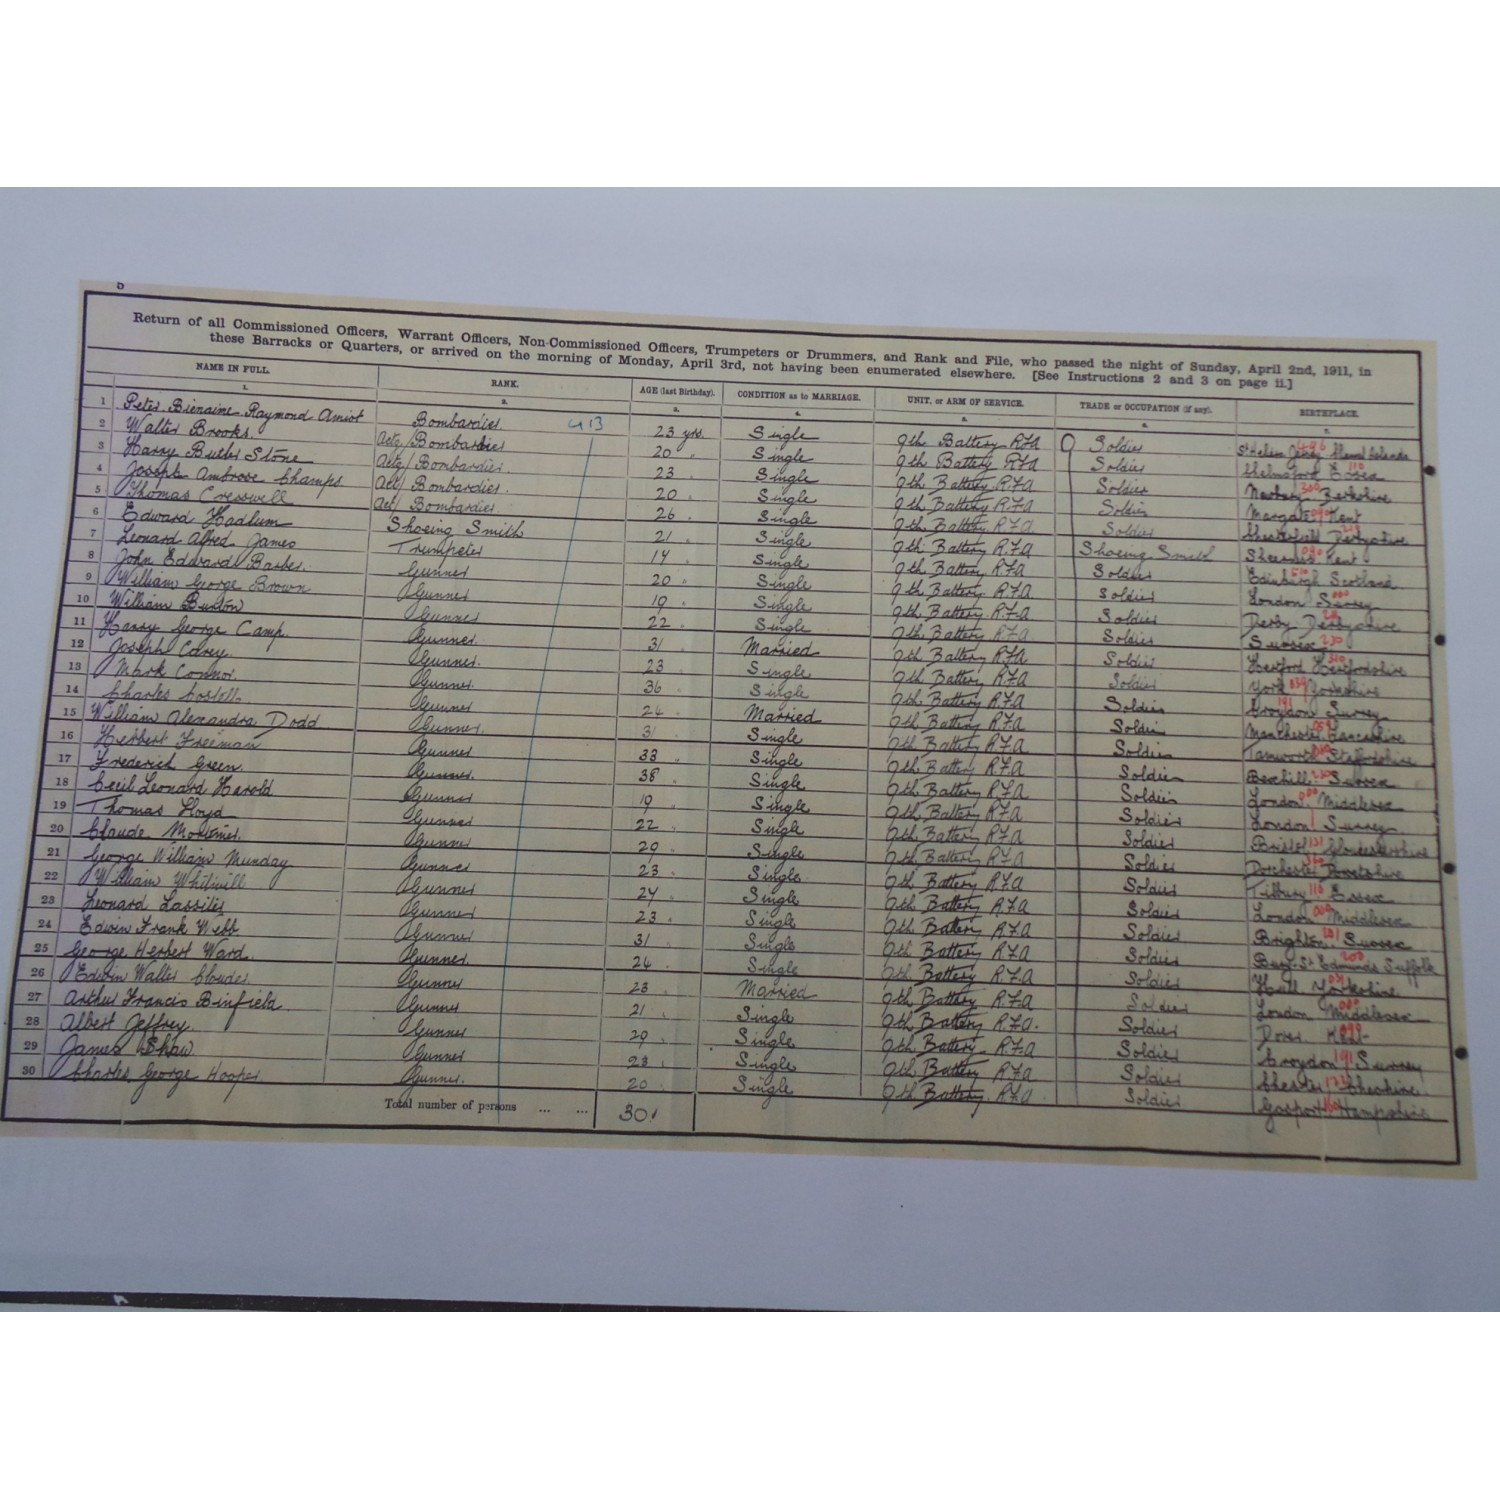 Return of all Commissioned Officers, Warrant Officers, Non-Commissioned Officers, Trumpeters or Drummers, and Rank and File, who passed the night of Sunday, April 2nd, 1911, in
these Barracks or Quarters, or arrived on the morning of Monday, April 3rd, not having been enumerated elsewhere. [See Instructions 2 and 3 on page ii.]
NAME IN FULL. RANK. AGE (last Birthday). CONDITION as to MARRIAGE. UNIT, or ARM OF SERVICE. TRADE or OCCUPATION (if any). BIRTHPLACE.
1. 2. 3. 4. 5. 6. 7.
413
1 Peter Bienaime Raymond Amiot Bombardier 23 yrs. Single 9th Battery RFA Soldier St Helier Jersey Islands
2 Walter Brooks. Actg/Bombardier 20 Single 9th Battery RFA Soldier Chelmsford Essex 110
3 Harry Butler Stone Actg/Bombardier. 23 Single 9th Battery R.F.A Soldier Newbury Berkshire
4 Joseph Ambrose Champs Act/Bombardier. 20 Single 9th Battery R.F.A Soldier Margate Kent
5 Thomas Cresswell Act/Bombardier 26 Single 9th Battery R.F.A Soldier Chesterfield Derbyshire
6 Edward Hadlum Shoeing Smith 21 Single 9th Battery R.F.A Shoeing Smith Sheerness Kent
7 Leonard Alfred James Trumpeter 14 Single 9th Battery R.F.A Soldier Edinburgh Scotland
8 John Edward Barber. Gunner 20 Single 9th Battery R.F.A Soldier London Surrey
9 William George Brown Gunner 19 Single 9th Battery R.F.A Soldier Derby Derbyshire
10 William Burton Gunner 22 Single 9th Battery R.F.A Soldier Sussex 230
11 Harry George Camp. Gunner 31 Married 9th Battery R.F.A Soldier Hertford Hertfordshire
12 Joseph Carey. Gunner. 23 Single 9th Battery R.F.A Soldier York Yorkshire
13 Mark Connor. Gunner 36 Single 9th Battery R.F.A Soldier Croydon Surrey 191
14 Charles Costello Gunner 24 Married 9th Battery R.F.A Soldier Manchester Lancashire
15 William Alexandra Dodd Gunner 31 Single 9th Battery R.F.A Soldier Tamworth Staffordshire
16 Herbert Freeman Gunner 33 Single 9th Battery R.F.A Soldier Bexhill Sussex
17 Frederick Green. Gunner 38 Single 9th Battery R.F.A Soldier London Middlesex
18 Cecil Leonard Harold Gunner 19 Single 9th Battery R.F.A Soldier London Surrey
19 Thomas Lloyd Gunner 22 Single 9th Battery R.F.A Soldier Bristol 131 Gloucestershire
20 Claude Mortimer. Gunner 29 Single 9th Battery R.F.A Soldier Dorchester Dorsetshire
21 George William Munday Gunner 23 Single 9th Battery R.F.A Soldier Tilbury 110 Essex
22 William Gunner 24 Single 9th Battery R.F.A Soldier London Middlesex
23 Leonard Gunner 23 Single 9th Battery R.F.A Soldier Brighton Sussex
24 Edwin Frank Webb Gunner 31 Single 9th Battery R.F.A Soldier Bury St Edmunds Suffolk
25 George Herbert Ward. Gunner 24 Single 9th Battery R.F.A Soldier Hull Yorkshire
26 Edwin Walter Clouder Gunner 23 Married 9th Battery R.F.A Soldier London Middlesex
27 Arthur Francis Binfield. Gunner 21 Single 9th Battery R.F.A. Soldier Dover Kent
28 Albert Jeffrey. Gunner 29 Single 9th Battery R.F.A Soldier Croydon 191 Surrey
29 James Shaw Gunner 23 Single 9th Battery R.F.A Soldier Chester Cheshire
30 Charles George Hooper. Gunner. 20 Single 9th Battery R.F.A. Soldier Gosport Hampshire
Total number of persons ... ... 30